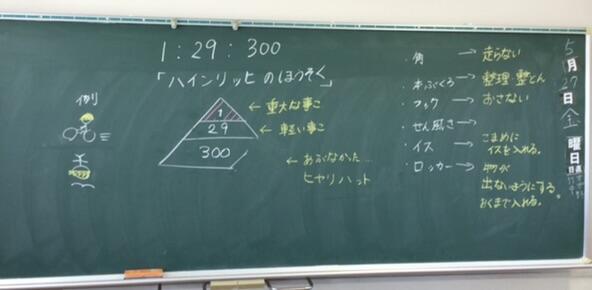 1:29:300
「ハインリッヒのほうそく」
例
1
29
300
← 重大な事こ
← 軽い事こ
← あぶなかった…
ヒヤリハット
・角 → 走らない
・本ぶくろ → 整理整とん
・フック → おさない
・せん風き →
・イス → こまめに
イスを入れる。
・ロッカー → 物が
出ないようにする。
おくまで入れる。
5
月
27
日
金
曜日
日直